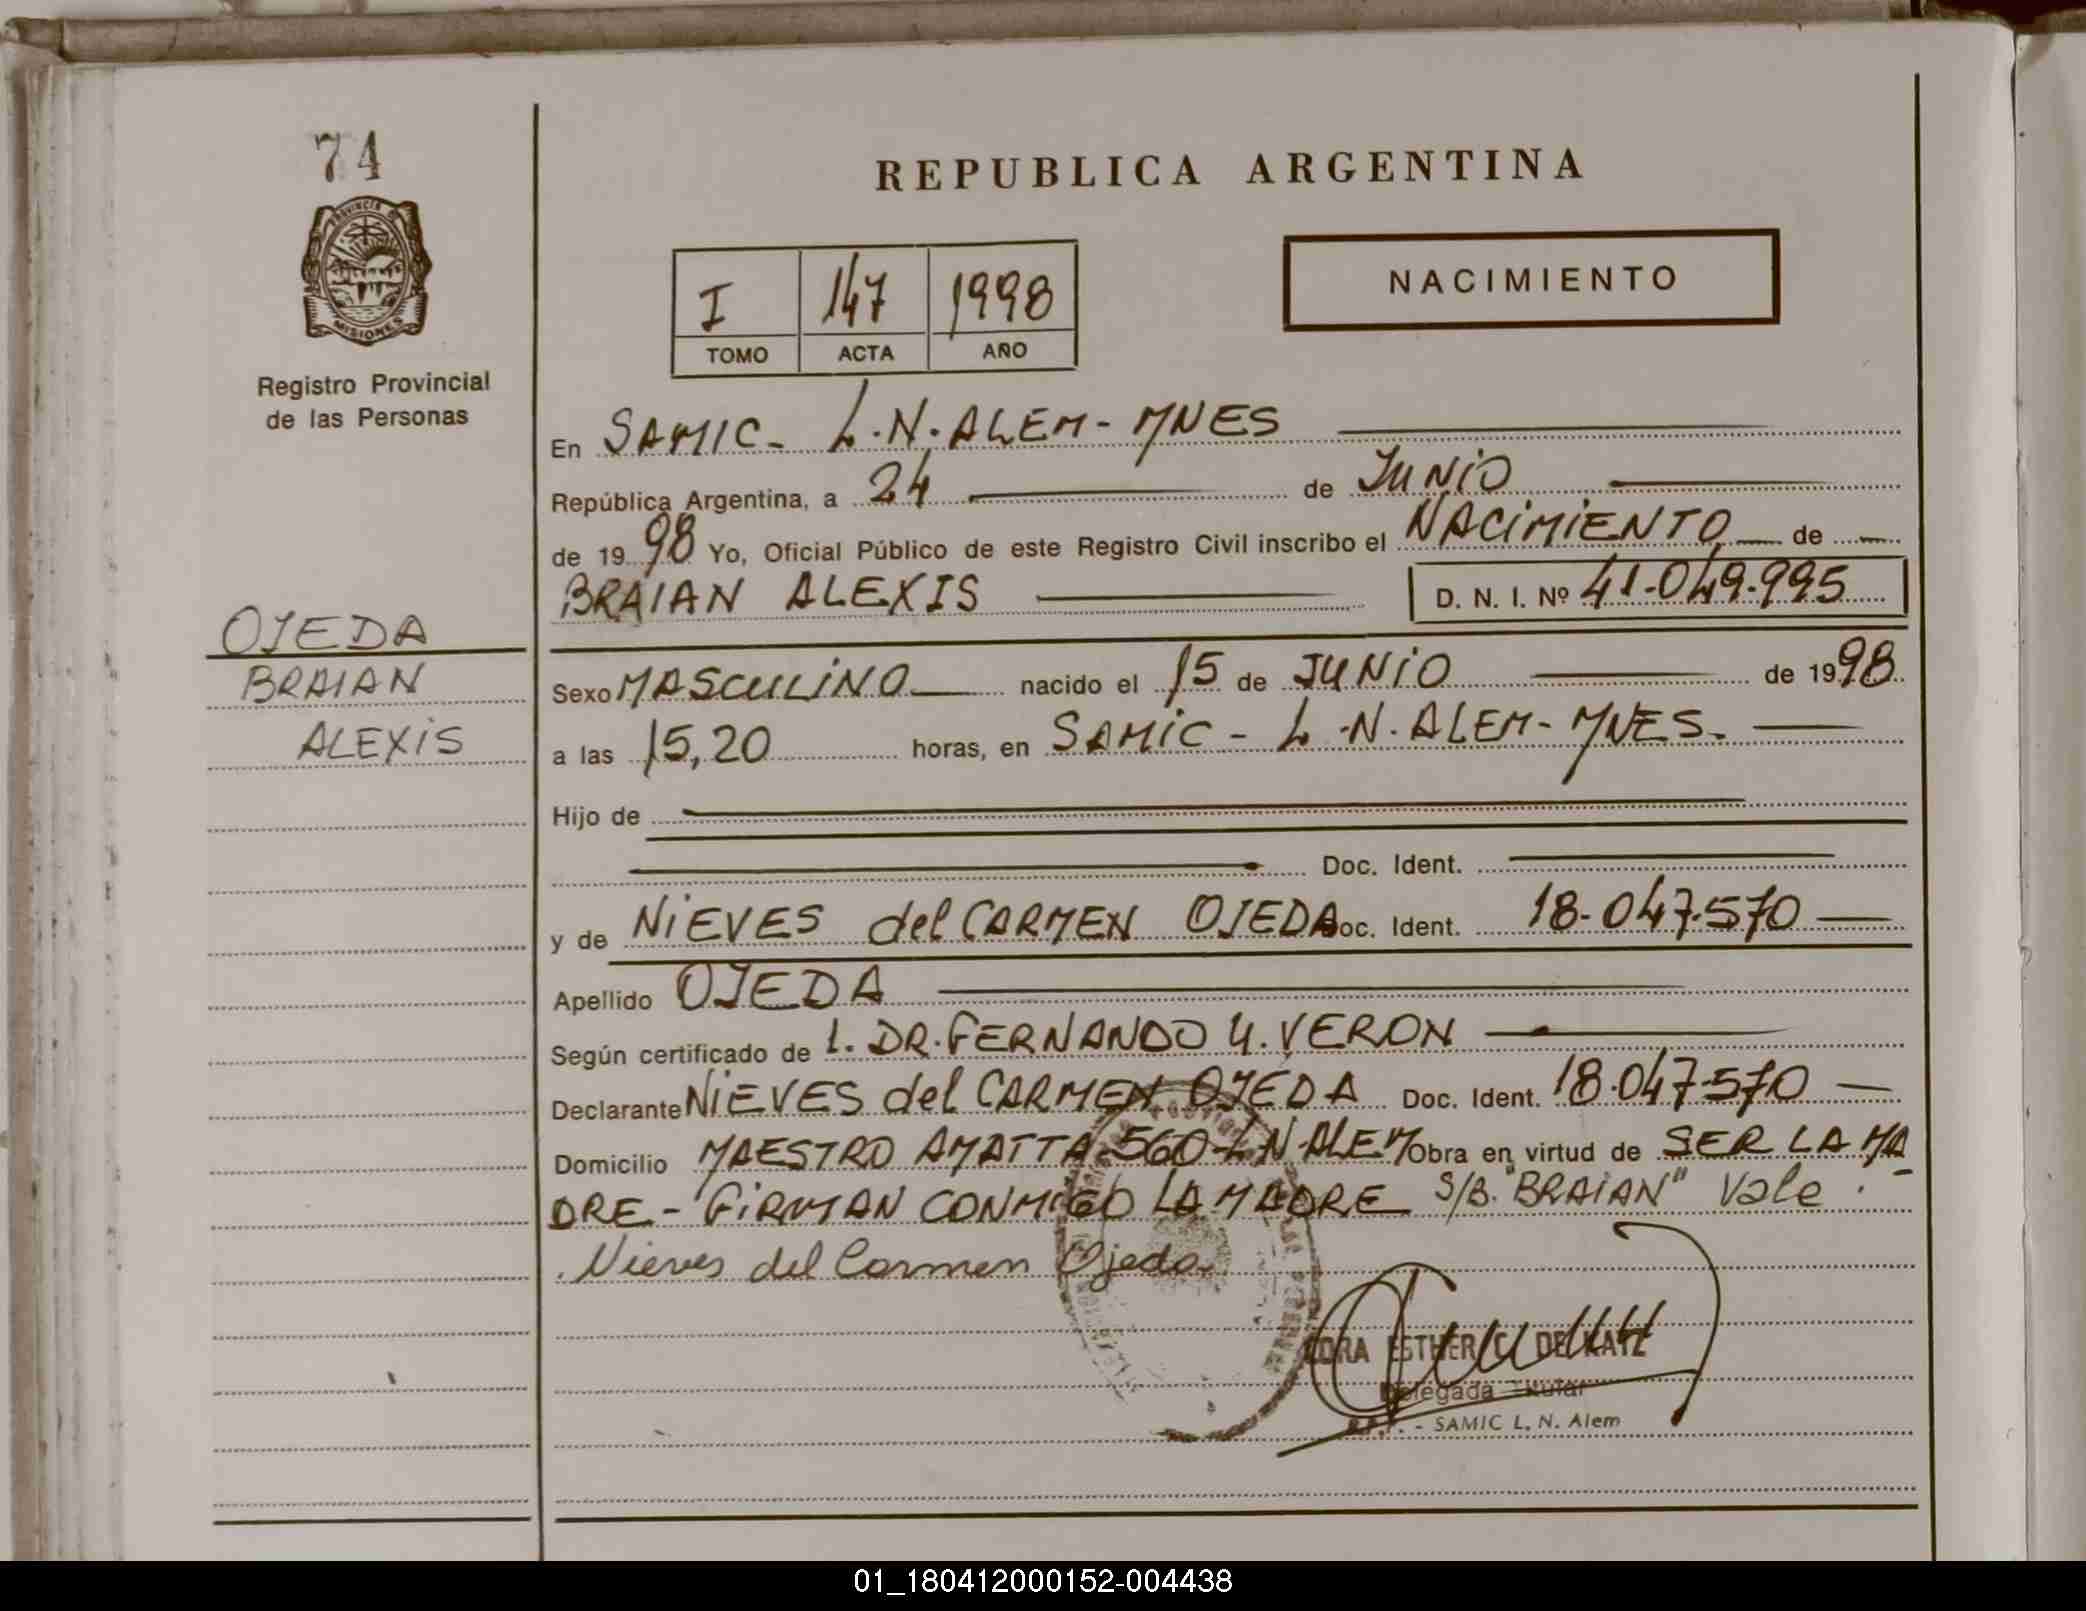 74
PROVINCIA DE
MISIONES
Registro Provincial
de las Personas
OJEDA
BRAIAN
ALEXIS
REPUBLICA ARGENTINA
I 147 1998
TOMO ACTA AÑO
NACIMIENTO
En SAMIC - L.N. ALEM - MNES
República Argentina, a 24 de JUNIO
de 1998 Yo, Oficial Público de este Registro Civil inscribo el NACIMIENTO de
BRAIAN ALEXIS D. N. I. Nº 41.049.995
Sexo MASCULINO nacido el 15 de JUNIO de 1998
a las 15,20 horas, en SAMIC - L.N. ALEM - MNES.
Hijo de
Doc. Ident.
y de NIEVES del CARMEN OJEDA Doc. Ident. 18.047.570
Apellido OJEDA
Según certificado de DR. FERNANDO VERON
Declarante NIEVES del CARMEN OJEDA Doc. Ident. 18.047.570
Domicilio MAESTRO AMATTA 560 L.N. ALEM Obra en virtud de SER LA MA
DRE - FIRMAN CONMIGO LA MADRE S/B. "BRAIAN" Vale . -
Nieves del Carmen Ojeda
ESTHER C. DE KATZ
Delegada Titular
R.P.P. - SAMIC L. N. Alem
01_180412000152-004438